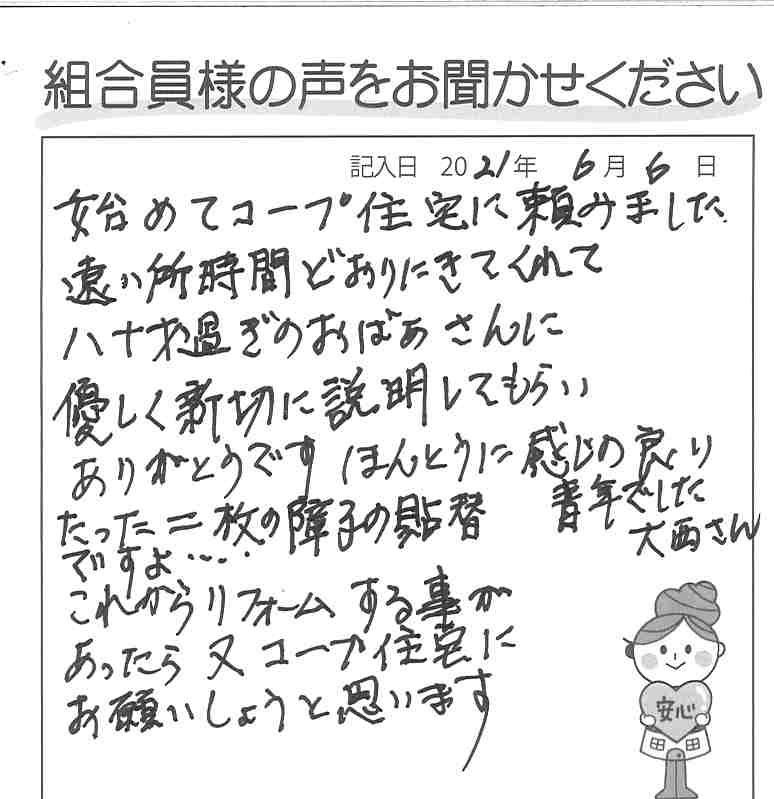 組合員様の声をお聞かせください
記入日 2021年 6月 6日
始めてコープ住宅に頼みました
遠い所時間どおりにきてくれて
八十才過ぎのおばあさんに
優しく新切に説明してもらい
ありがとうです ほんとうに感じの良い
青年でした
大西さん
たった二枚の障子の貼替
ですよ・・・・
これからリフォームする事が
あったら又コープ住宅に
お願いしょうと思います
安心